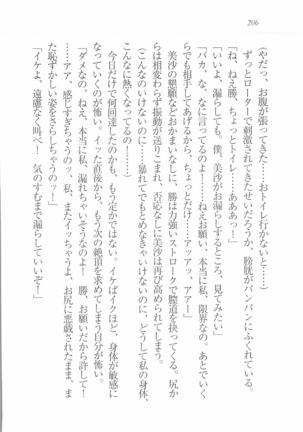 206
(やだっ、お腹が張ってきた……おトイレ行かないと……)
ずっとローターで刺激されてきたせいだろうか、膀胱がパンパンにふくれている。
「ね、ねえ勝、ちょっとトイレ……あああっ!」
「いいよ、漏らしても。僕、美沙がお漏らしするところ、見てみたい」
「バカ、な、なに言ってるのよ……ねえお願い、本当に私、限界なの。あとでいく
らでも相手してあげるから、ちょっとだけ……アッアッ、アアー!」
美沙の懇願などおかまいなしに、勝は力強いストロークで膣道を抉ってくる。尻か
らは相変わらず振動が送りこまれ、否応なしに美沙は再び高められてしまう。
(こんなのいけないのに……暴れてでもとめなきゃいけないのに、どうして私の身体、
こんなに熱くなってくるの……)
今日だけで何回達したのかも、もう定かではない。イケばイクほど、身体が敏感に
なっていくのが怖い。イッた直後から、もう次の絶頂を求めてしまう自分が怖い。
「ダメなの、ねえ、本当に私、漏れちゃいそうなのよ! 勝、お願いだから許して!
……アア、感じすぎちゃうのッ、私、またイッちゃうよ、お尻に悪戯されたまま、ま
た恥ずかしい姿をさらしちゃうのッー!」
「イケよ、遠慮なく叫べ! 気のすむまで漏らしていいぞ!」